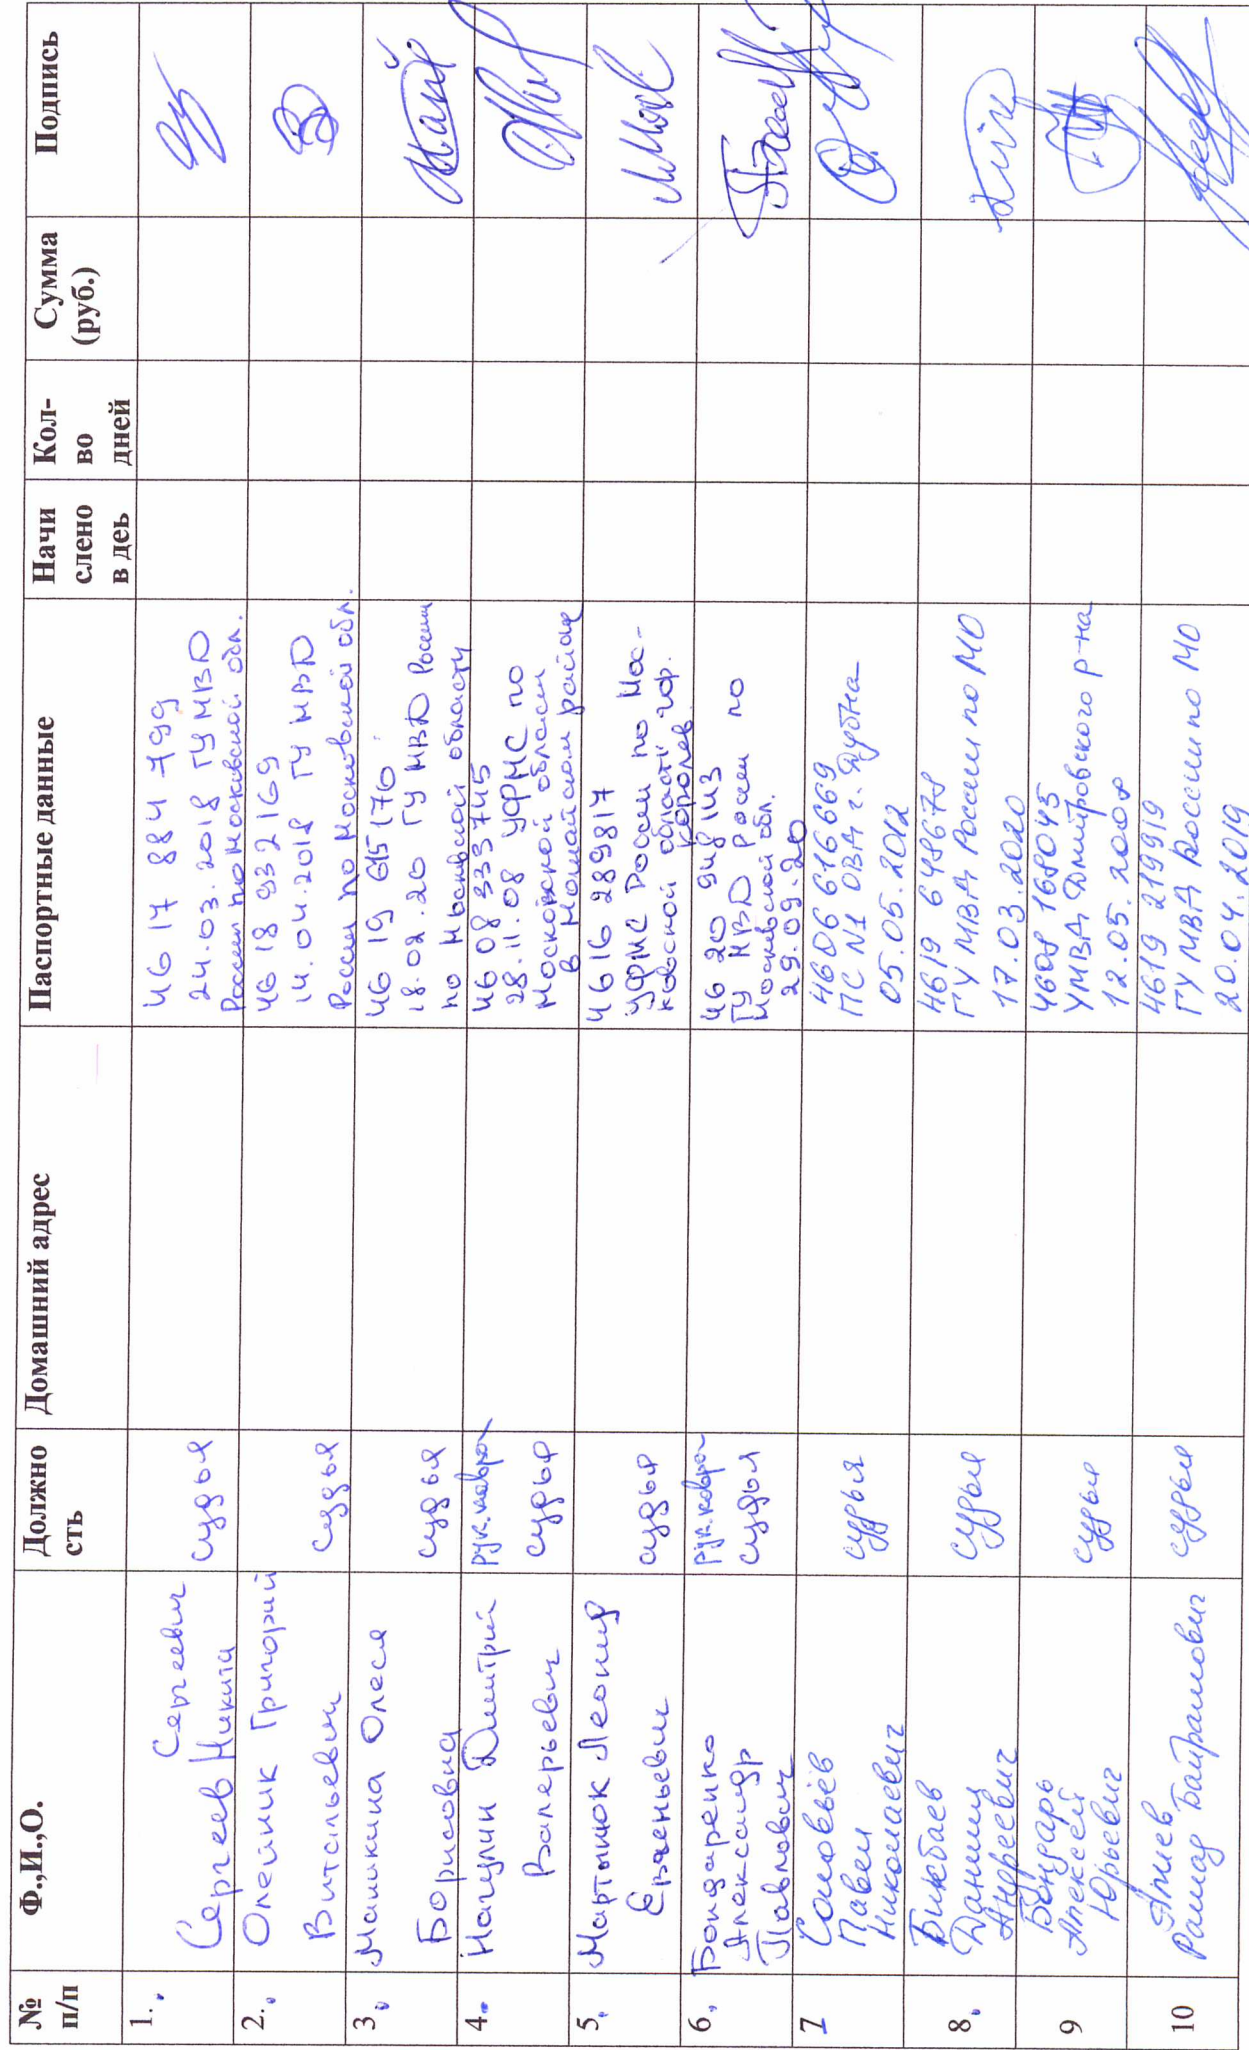 № п/п
Ф.,И.,О.
Должно
сть
Домашний адрес
Паспортные данные
Начи
слено
в деь
Кол-
во
дней
Сумма
(руб.)
Подпись
1.
Сергеевич
Сергеев Никита
судья
46 17 884 799
24.03.2018 ГУ МВД
России по Московской обл.
2.
Олейник Григорий
Витальевич
судья
46 18 932169
14.04.2018 ГУ МВД
России по Московской обл.
3.
Маликина Олеся
Борисовна
судья
46 19 615176
18.02.20 ГУ МВД России
по Московской области
4.
Нагулин Дмитрий
Валерьевич
рук. ковра
судья
46 08 333745
28.11.08 УФМС по
Московской области
в Можайском районе
5.
Мартынюк Леонид
Евгеньевич
судья
4616 289817
УФМС России по Мос-
ковской области гор.
Королев
6.
Бондаренко
Александр
Павлович
рук. ковра
судья
46 20 948 143
ГУ МВД России по
Московской обл.
29.09.20
7
Соловьёв
Павел
Николаевич
судья
4606 616669
ПС №1 ОВД г. Дубна
05.05.2012
8.
Бикбаев
Данил
Андреевич
судья
4619 648678
ГУ МВД России по МО
17.03.2020
9
Бондарь
Алексей
Юрьевич
судья
4608 168045
УМВД Дмитровского р-на
12.05.2008
10
Алиев
Рашад Байрамович
судья
4619 219919
ГУ МВД России по МО
20.04.2019